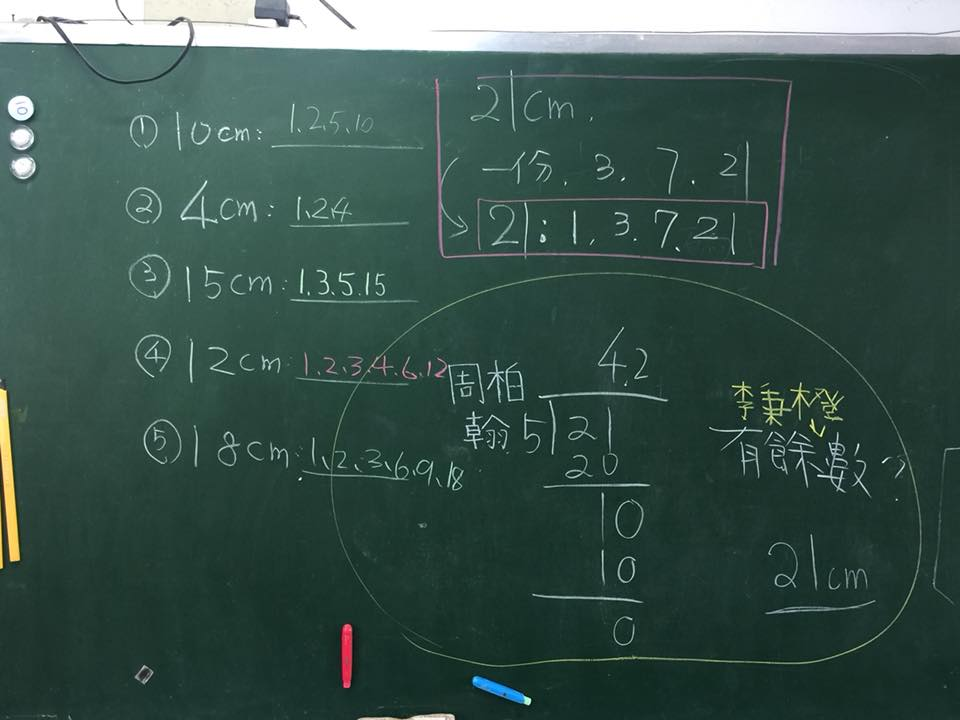 ① 10cm: 1.2.5.10
② 4cm: 1.2.4
③ 15cm: 1.3.5.15
④ 12cm: 1.2.3.4.6.12
⑤ 18cm: 1.2.3.6.9.18
21cm.
一份. 3. 7. 21
21: 1. 3. 7. 21
周柏
翰
4.2
5 21
20
10
10
0
李秉橙
有餘數
21cm
10